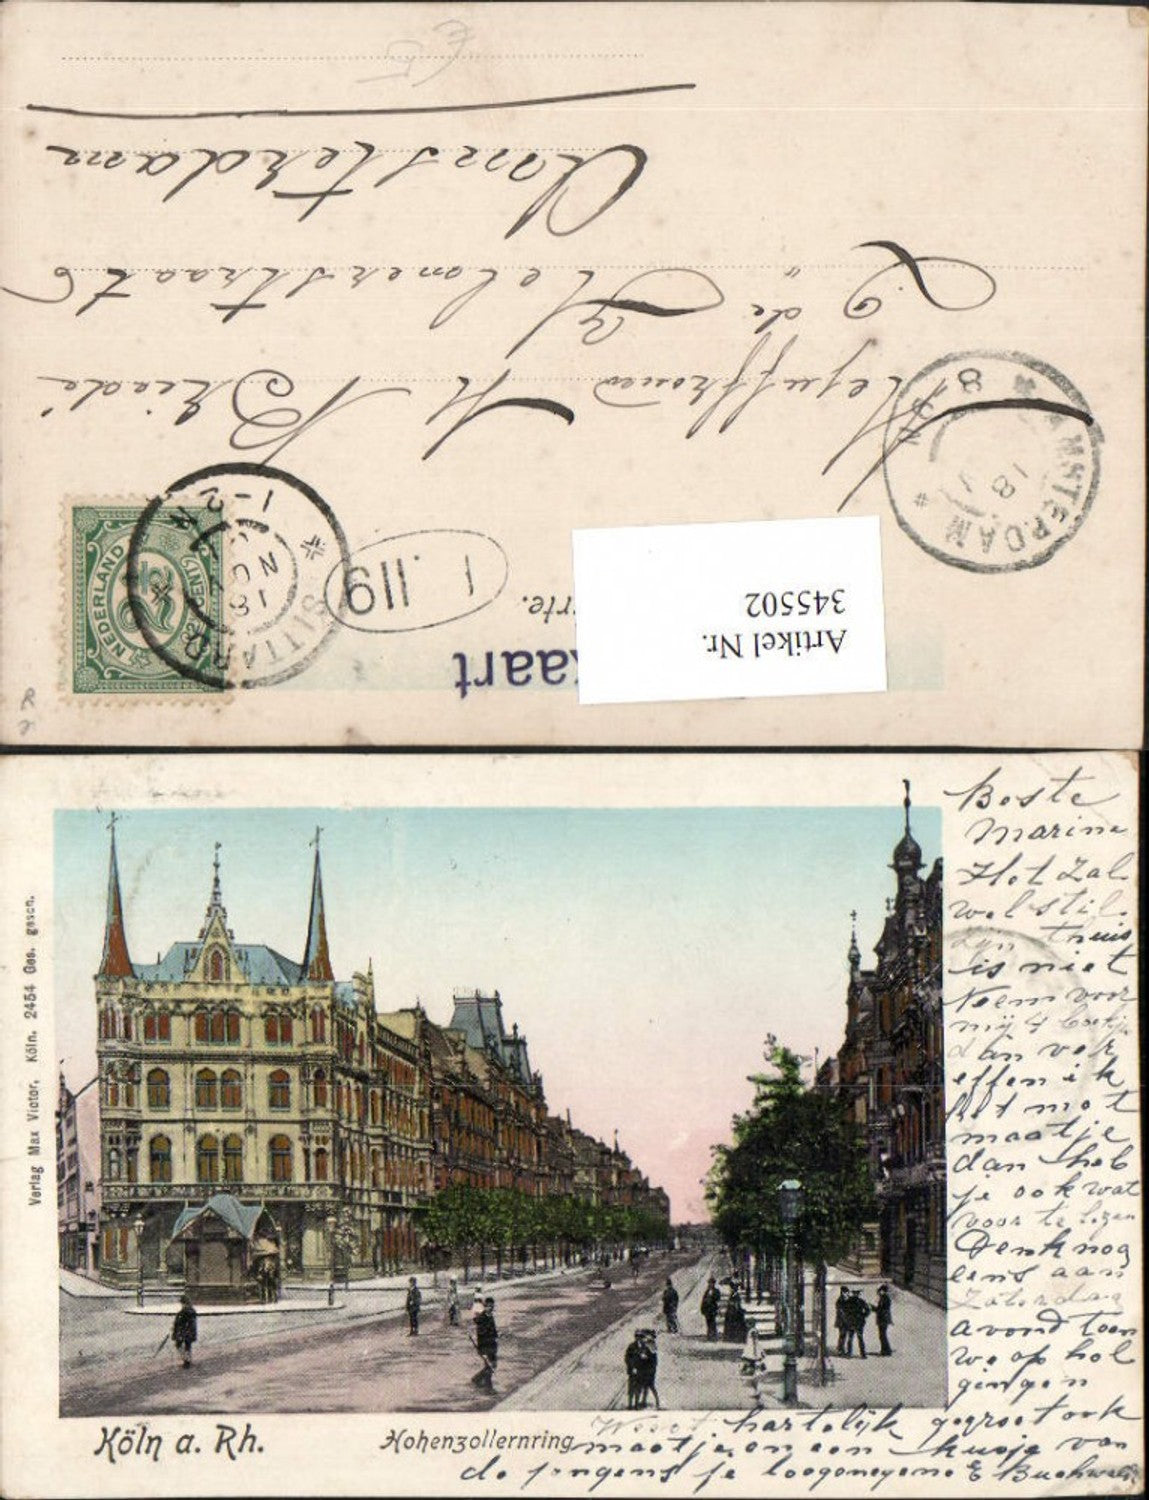 Amsterdam
2de Helmersstraat 6
Mejuffrouw M
Artikel Nr.
345502
kaart
rte.
1.119
NEDERLAND
2½ CENT
SITTARD
18 NOV
1-2N
AMSTERDAM
18
8-9N
Beste
Marine
Het zal
wel stil
zijn thuis
is niet
Neem voor
mij 4 boekje
dan ver
effen ik
het met
maatje
dan heb
je ook wat
voor te lezen
Denk nog
eens aan
Zaterdag
avond toen
we op hol
gingen
Weest hartelijk gegroet ook
maatje en een kusje van
de jongens je toegenegene E
Verlag Max Victor, Köln. 2454 Ges. gesch.
Köln a. Rh.
Hohenzollernring